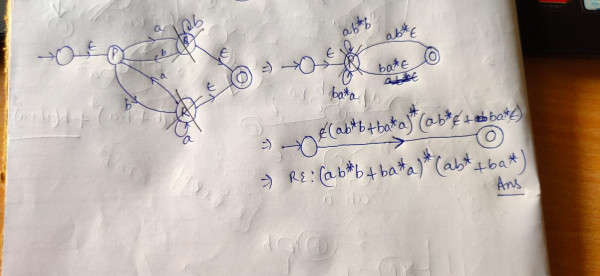 ε P a b Q b ε
b a R a ε
⇒ ε P ab*b ba*a ab*ε ba*ε
⇒ ε(ab*b+ba*a)*(ab*ε+ba*ε)
⇒ RE: (ab*b+ba*a)*(ab*+ba*)
Ans